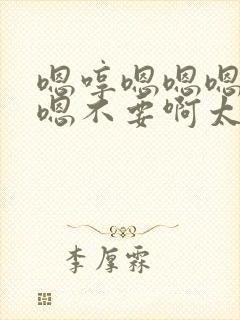 嗯哼嗯嗯嗯
嗯不要啊太
李厚霖